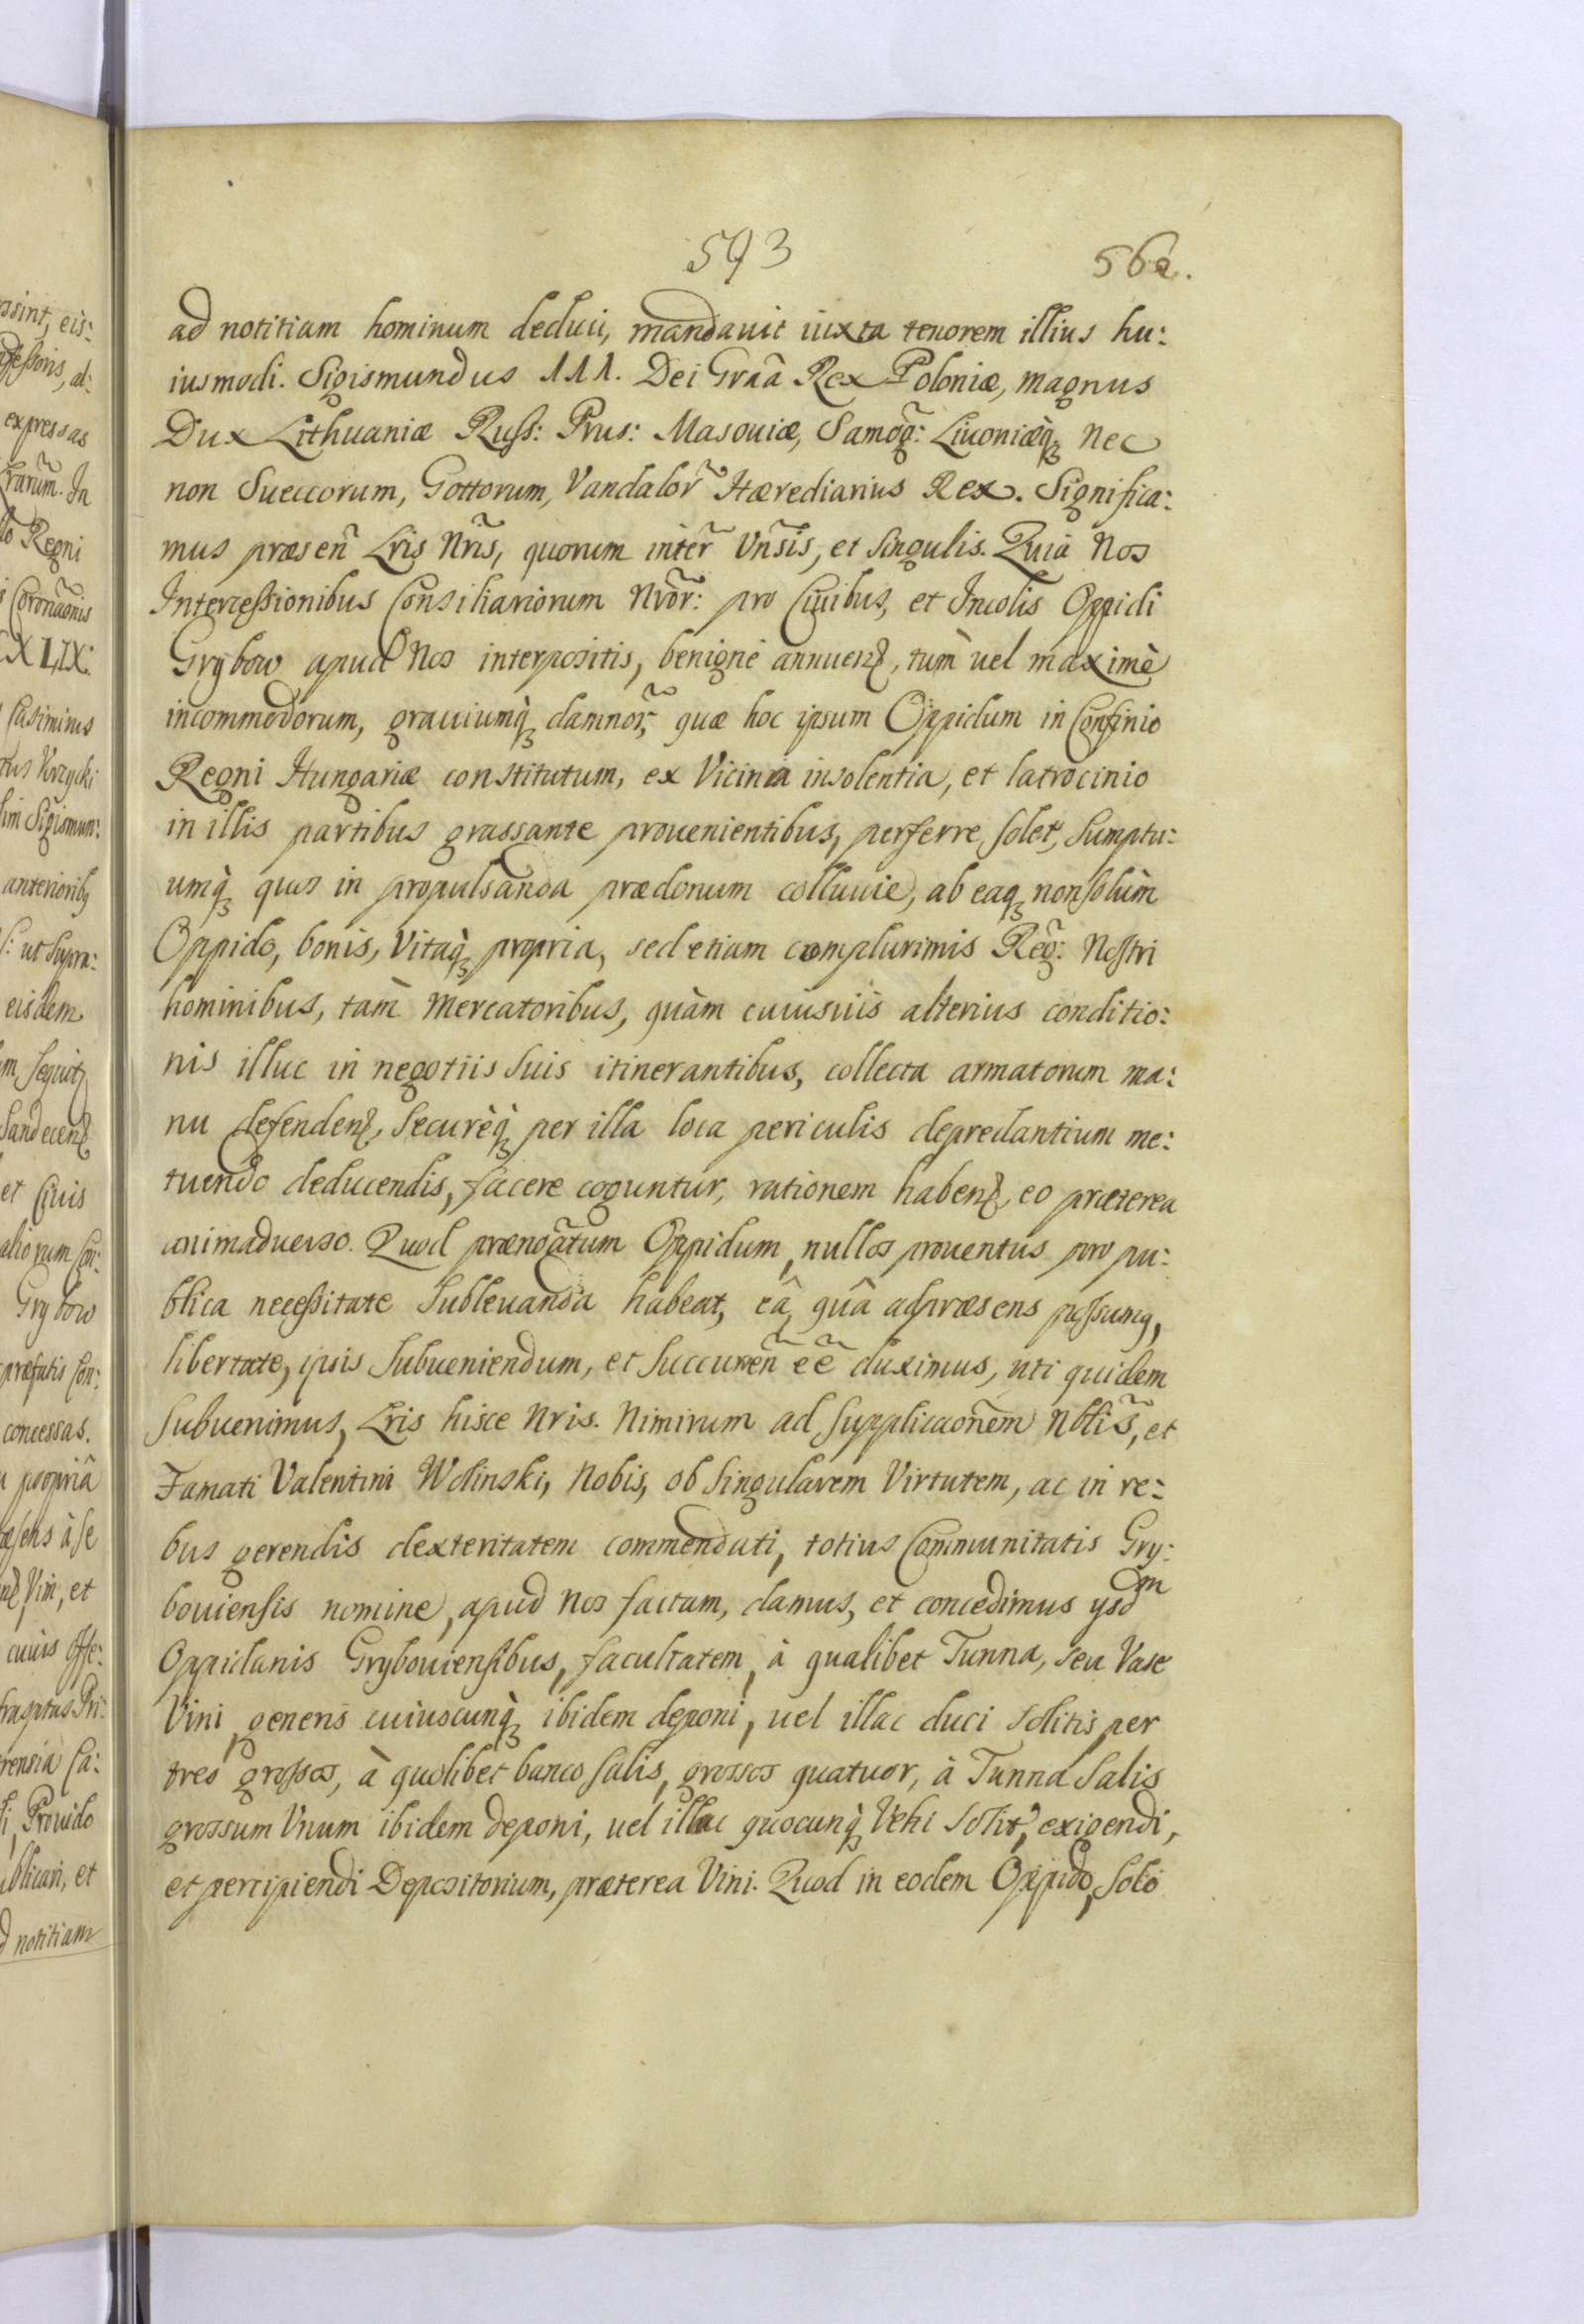 593
562.
ad notitiam hominum deduci, mandavit iuxta tenorem illius hu:
iusmodi. Sigismundus III. Dei Grãa Rex Poloniæ, magnus
Dux Lithuaniæ Russ: Prus: Masouiæ, Samog̃: Liuoniæq; Nec
non Sueccorum, Gottorum, Vandalor̃ Hærediarius Rex. Significa:
mus præseñ Lris Nr̃is, quorum inter̃ Vñsis, et singulis. Quia Nos
Intercessionibus Consiliariorum Nrõr: pro Ciuibus, et Incolis Oppidi
Grybow apud Nos interpositis, benigne annuenꝭ, tùm uel maximè
incommodorum, grauiumq; damnor̃, quæ hoc ipsum Oppidum in Confinio
Regni Hungariæ constitutum, ex Vicinia insolentia, et latrocinio
in illis partibus grassante prouenientibus, perferre solet, sumptu:
umq; quos in propulsanda prædonum colluuie, ab eaq; non solùm
Oppido, bonis, Vitaq; propria, sed etiam complurimis Reg̃: Nostri
hominibus, tam̀ Mercatoribus, quàm cuiusuis alterius conditio:
nis illuc in negotiis suis itinerantibus, collecta armatorum ma:
nu defendenꝭ, Securèq; per illa loca periculis depredantium me:
tuendo deducendis, facere coguntur, rationem habenꝭ, eo præterea
animaduerso. Quod prænoãtum Oppidum, nullos prouentus pro pu:
blica necessitate Subleuanda habeat, eâ, quâ ad præsens possumꝰ,
libertate, ipsis Subueniendum, et Succurreñ eẽ duximus, uti quidem
Subuenimus, Lris hisce Nris. Nimirum ad Supplicaonẽm Nbliš, et
Famati Valentini Wolinski, Nobis, ob Singularem Virtutem, ac in re:
bus gerendis dexteritatem commendati, totius Communitatis Gry:
bouiensis nomine, apud Nos factam, damus, et concedimus ysdm
Oppidanis Grybouiensibus, facultatem, à qualibet Tunna, seu Vase
Vini generis cuiuscunq; ibidem deponi, uel illac duci solitis per
tres grossos, à quolibet banco Salis, grossos quatuor, à Tunna Salis
grossum Vnum ibidem deponi, uel illac quocunq; Vehi Solit, exigendi,
et percipiendi Depositorium, præterea Vini. Quod in eodem Oppido, solo